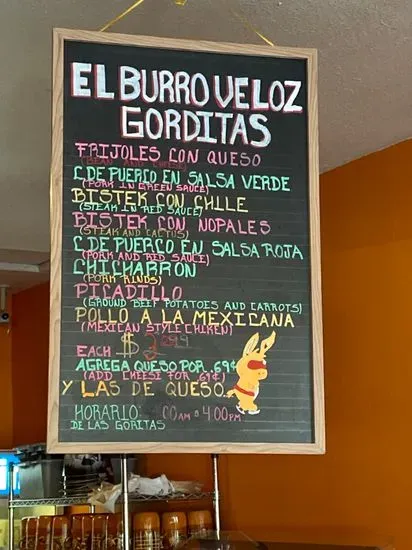 EL BURRO VELOZ
GORDITAS
FRIJOLES CON QUESO
(BEAN AND CHEESE)
C.DE PUERCO EN SALSA VERDE
(PORK IN GREEN SAUCE)
BISTEK CON CHILE
(STEAK IN RED SAUCE)
BISTEK CON NOPALES
(STEAK AND CACTUS)
C.DE PUERCO EN SALSA ROJA
(PORK AND RED SAUCE)
CHICHARRON
(PORK RINDS)
PICADILLO
(GROUND BEEF POTATOES AND CARROTS)
POLLO A LA MEXICANA
(MEXICAN STYLE CHIKEN)
EACH $2
AGREGA QUESO POR .69¢
(ADD CHEESE FOR .69¢)
Y LAS DE QUESO
HORARIO: :00AM A 4:00PM
DE LAS GORITAS